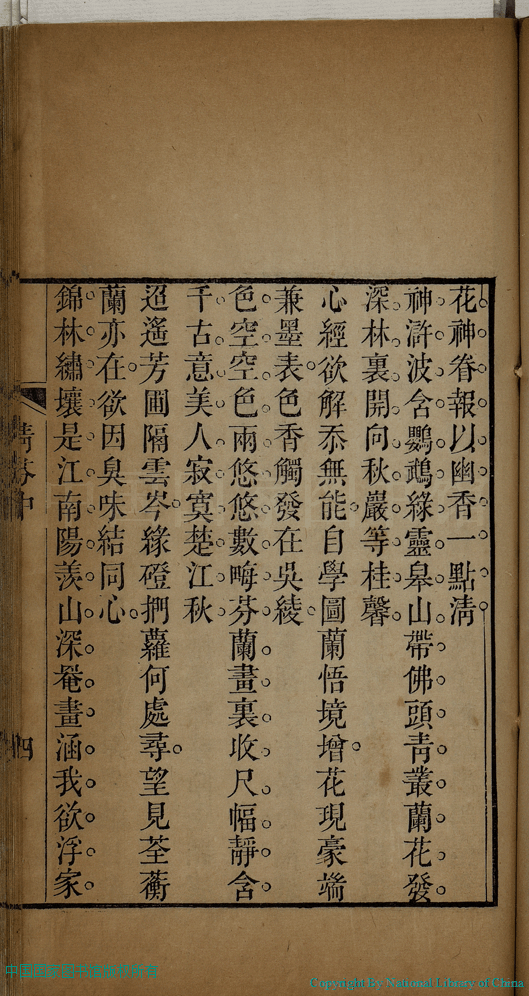 花神眷報以幽香一點淸
神滸波含鸚鵡綠靈皋山帶佛頭靑叢蘭花發
深林裏開向秋巖等桂馨
心經欲解忝無能自學圖蘭悟境增花現豪端
兼墨表色香觸發在吳綾
色空空色兩悠悠數畮芬蘭畫裏收尺幅靜含
千古意美人寂寞楚江秋
迢遙芳圃隔雲岑緣磴捫蘿何處尋望見荃蘅
蘭亦在欲因臭味結同心
錦林繡壤是江南陽羨山深罨畫涵我欲浮家
四
Copyright By National Library of China